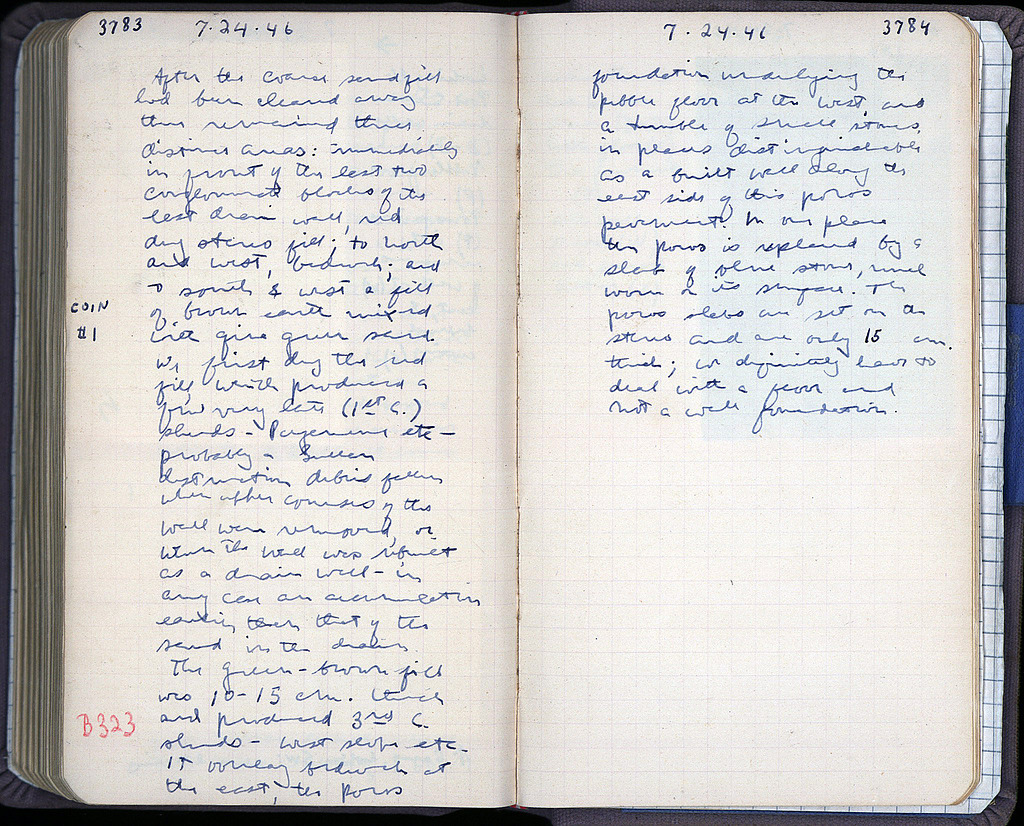 3783 7.24.46
After the coarse sand fill
had been cleared away
there remained three
distinct areas: immediately
in front of the last two
conglomerate blocks of the
east drain wall, red
dry stereo fill; to north
and west, bedrock; and
to south & west a fill
COIN
of brown earth mixed
#1
with green sand.
We first dug the red
fill, which produced a
few very late (1st C.)
sherds - Pergamene etc -
probably - Sullan
destruction debris fallen
when upper courses of the
wall were removed, or
when the wall was rebuilt
as a drain wall - in
any case an accumulation
earlier than that of the
sand in the drain.
The green-brown fill
was 10-15 cm. thick
B323
and produced 3rd C.
sherds - west slope etc.
It overlay bedrock at
the east, the poros
7.24.46 3784
foundation underlying the
pebble floor at the west and
a tumble of small stones,
in places distinguishable
as a built wall along the
east side of this poros
pavement. In one place
the poros is replaced by a
slab of blue stone, much
worn on its surface. The
poros slabs are set on the
stereo and are only 15 cm.
thick; we definitely have to
deal with a floor and
not a wall foundation.